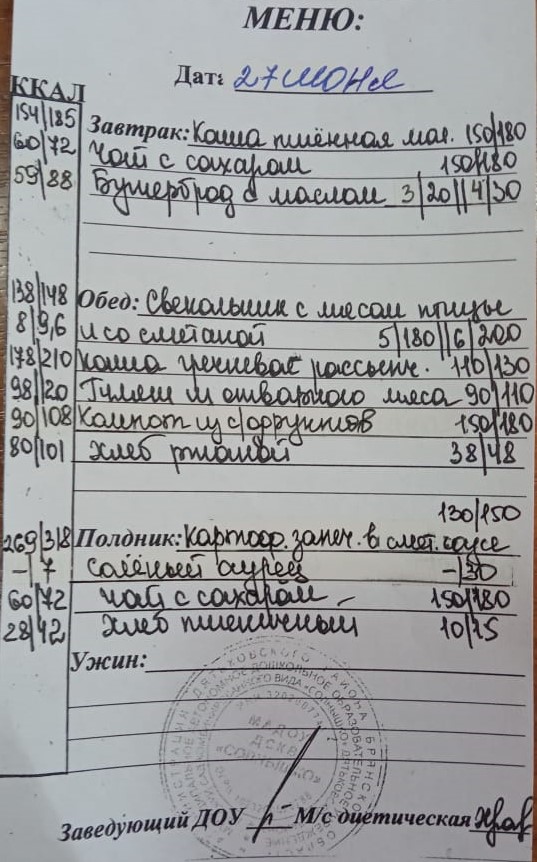 МЕНЮ:
Дата 27 июня
ККАЛ
154/185 Завтрак: Каша пшённая мол. 150/180
60/72 Чай с сахаром 150/180
59/88 Бутерброд с маслом 3/20//4/30
138/148 Обед: Свекольник с мясом птицы
8/9,6 и со сметаной 5/180//6/200
178/210 Каша гречневая рассыпч. 110/130
98/120 Гуляш из отварного мяса 90/110
90/108 Компот из с/фруктов 150/180
80/101 Хлеб ржаной 38/48
130/150
269/318 Полдник: Картоф. запеч. в смет. соусе
-/7 солёный огурец -/30
60/72 Чай с сахаром 150/180
28/42 Хлеб пшеничный 10/15
Ужин:
МАДОУ
ДСКВ
«СОЛНЫШКО»
Заведующий ДОУ М/с диетическая